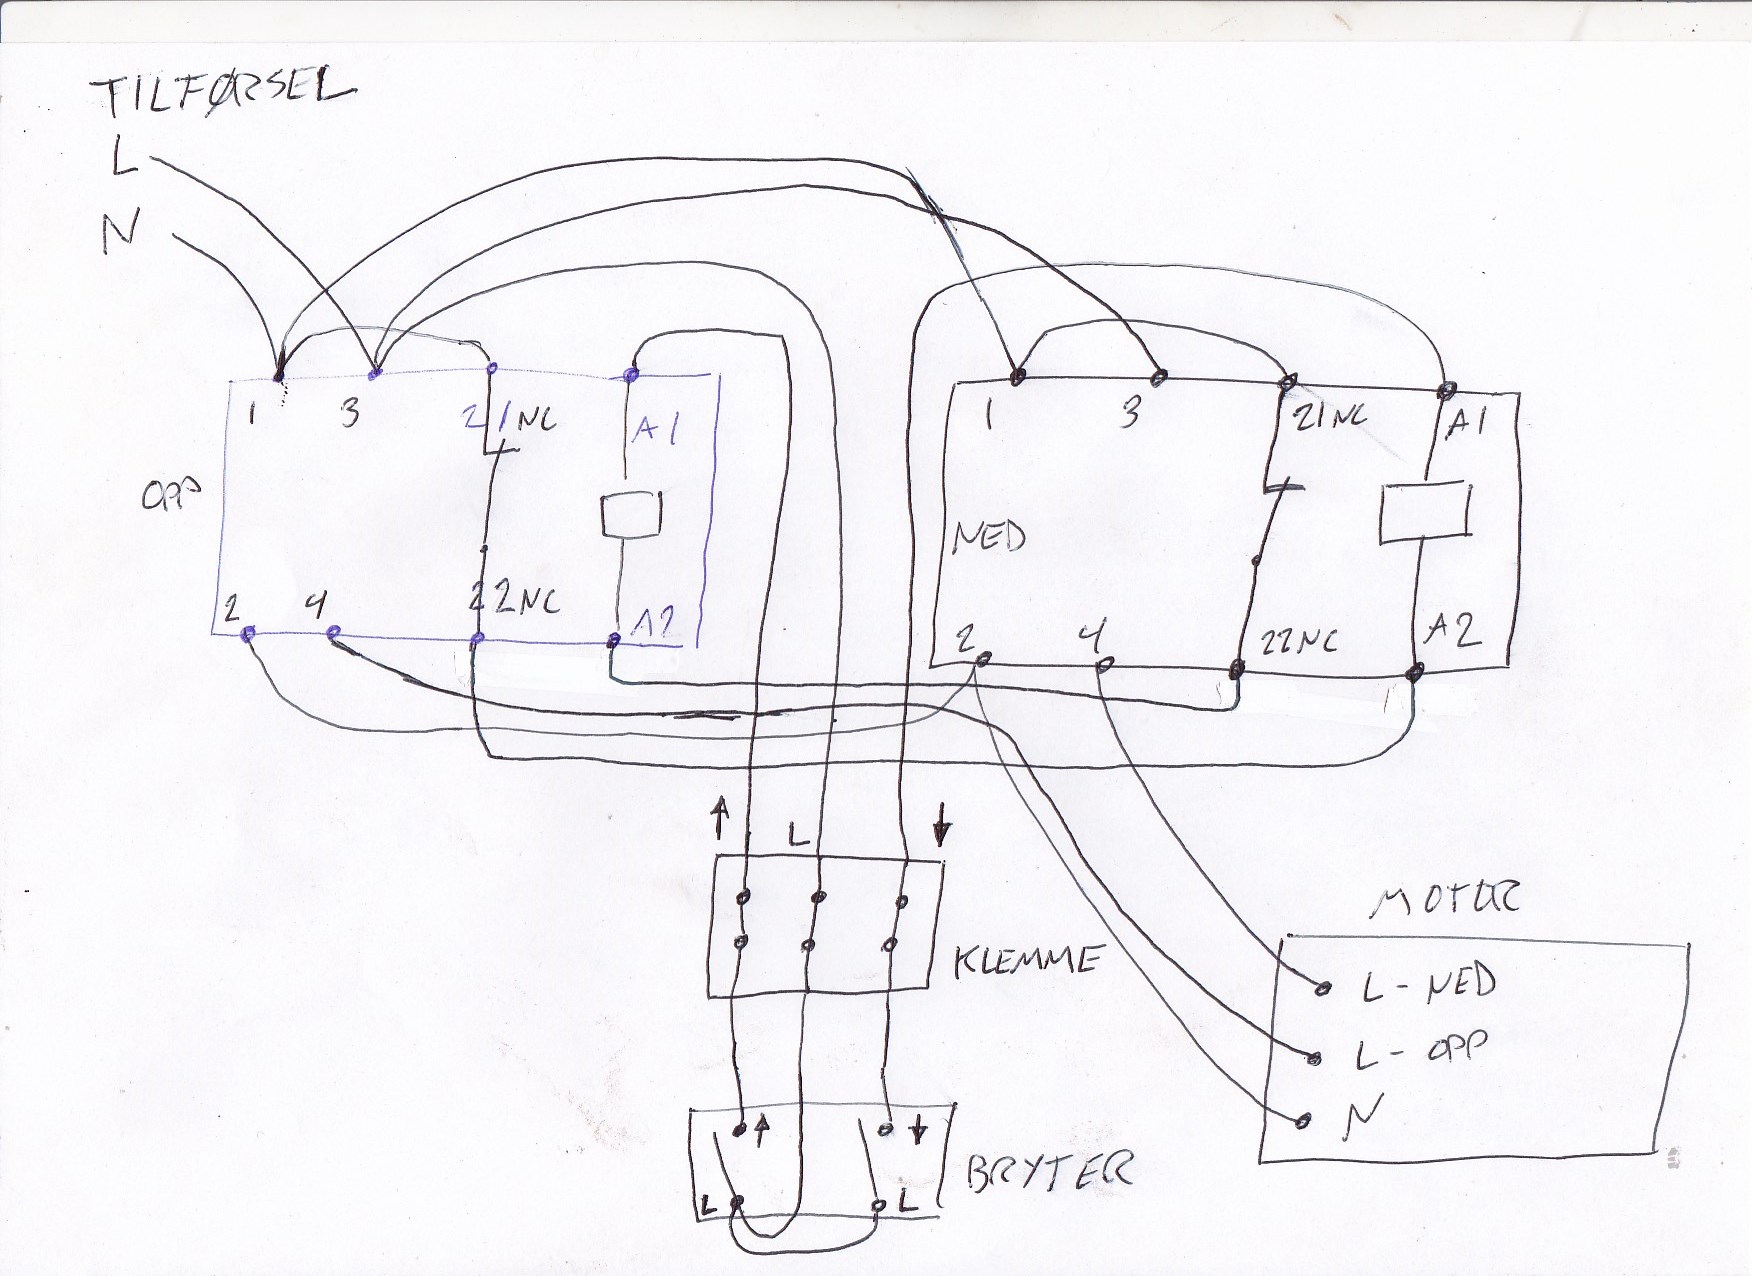 TILFØRSEL
L
N
OPP
1 3 21NC A1
2 4 22NC A2
NED
1 3 21NC A1
2 4 22NC A2
↑ L ↓
KLEMME
↑ ↓
L L
BRYTER
MOTOR
L - NED
L - OPP
N